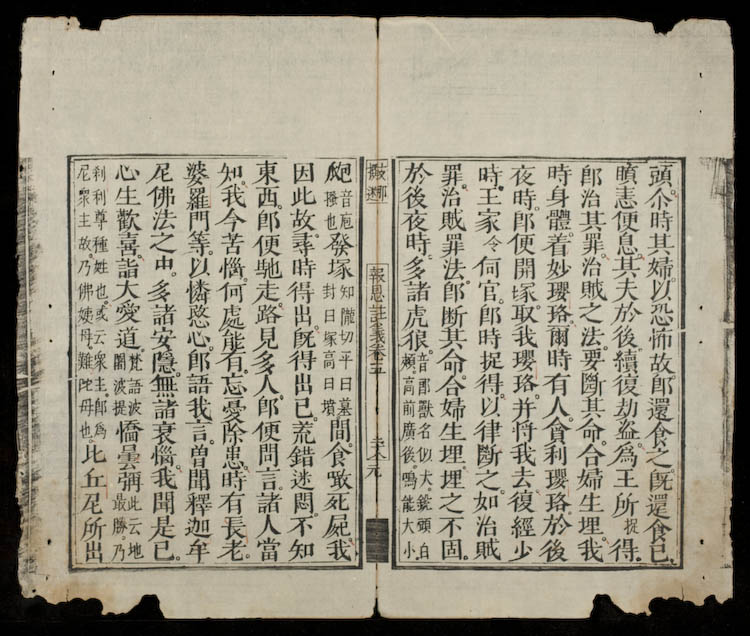 頭尒時其婦以恐怖故郎還食之旣還食已
瞋恚便息其夫於後續復劫盜爲王所捉得
郎治其罪治賊之法要斷其命合婦生埋我
時身體着妙瓔珞爾時有人貪利瓔珞於後
夜時郎便開塚取我瓔珞并将我去復經少
時王家令何官郎時捉得以律斷之如治賊
罪治賊罪法郎斷其命合婦生埋埋之不固
於後夜時多諸虎狼音郎獸名似犬銳頭白
頰高前廣後鳴能大小
報恩註義卷五
𠒇
爬音庖
搔也發塚知隴切平曰墓
封曰塚高曰墳間食噉死屍我
因此故尋時得出旣得出已荒錯迷悶不知
東西郎便馳走路見多人郎便問言諸人當
知我今苦惱何處能有忘憂除患時有長老
婆羅門等以憐愍心郎語我言曽聞釋迦牟
尼佛法之中多諸安隱無諸衰惱我聞是已
心生歡喜詣大愛道梵語波
闍波提憍曇弥此云地
最勝乃
刹利尊種姓也或云衆主郎爲
尼衆主故乃佛姨母難陀母也比丘尼所出